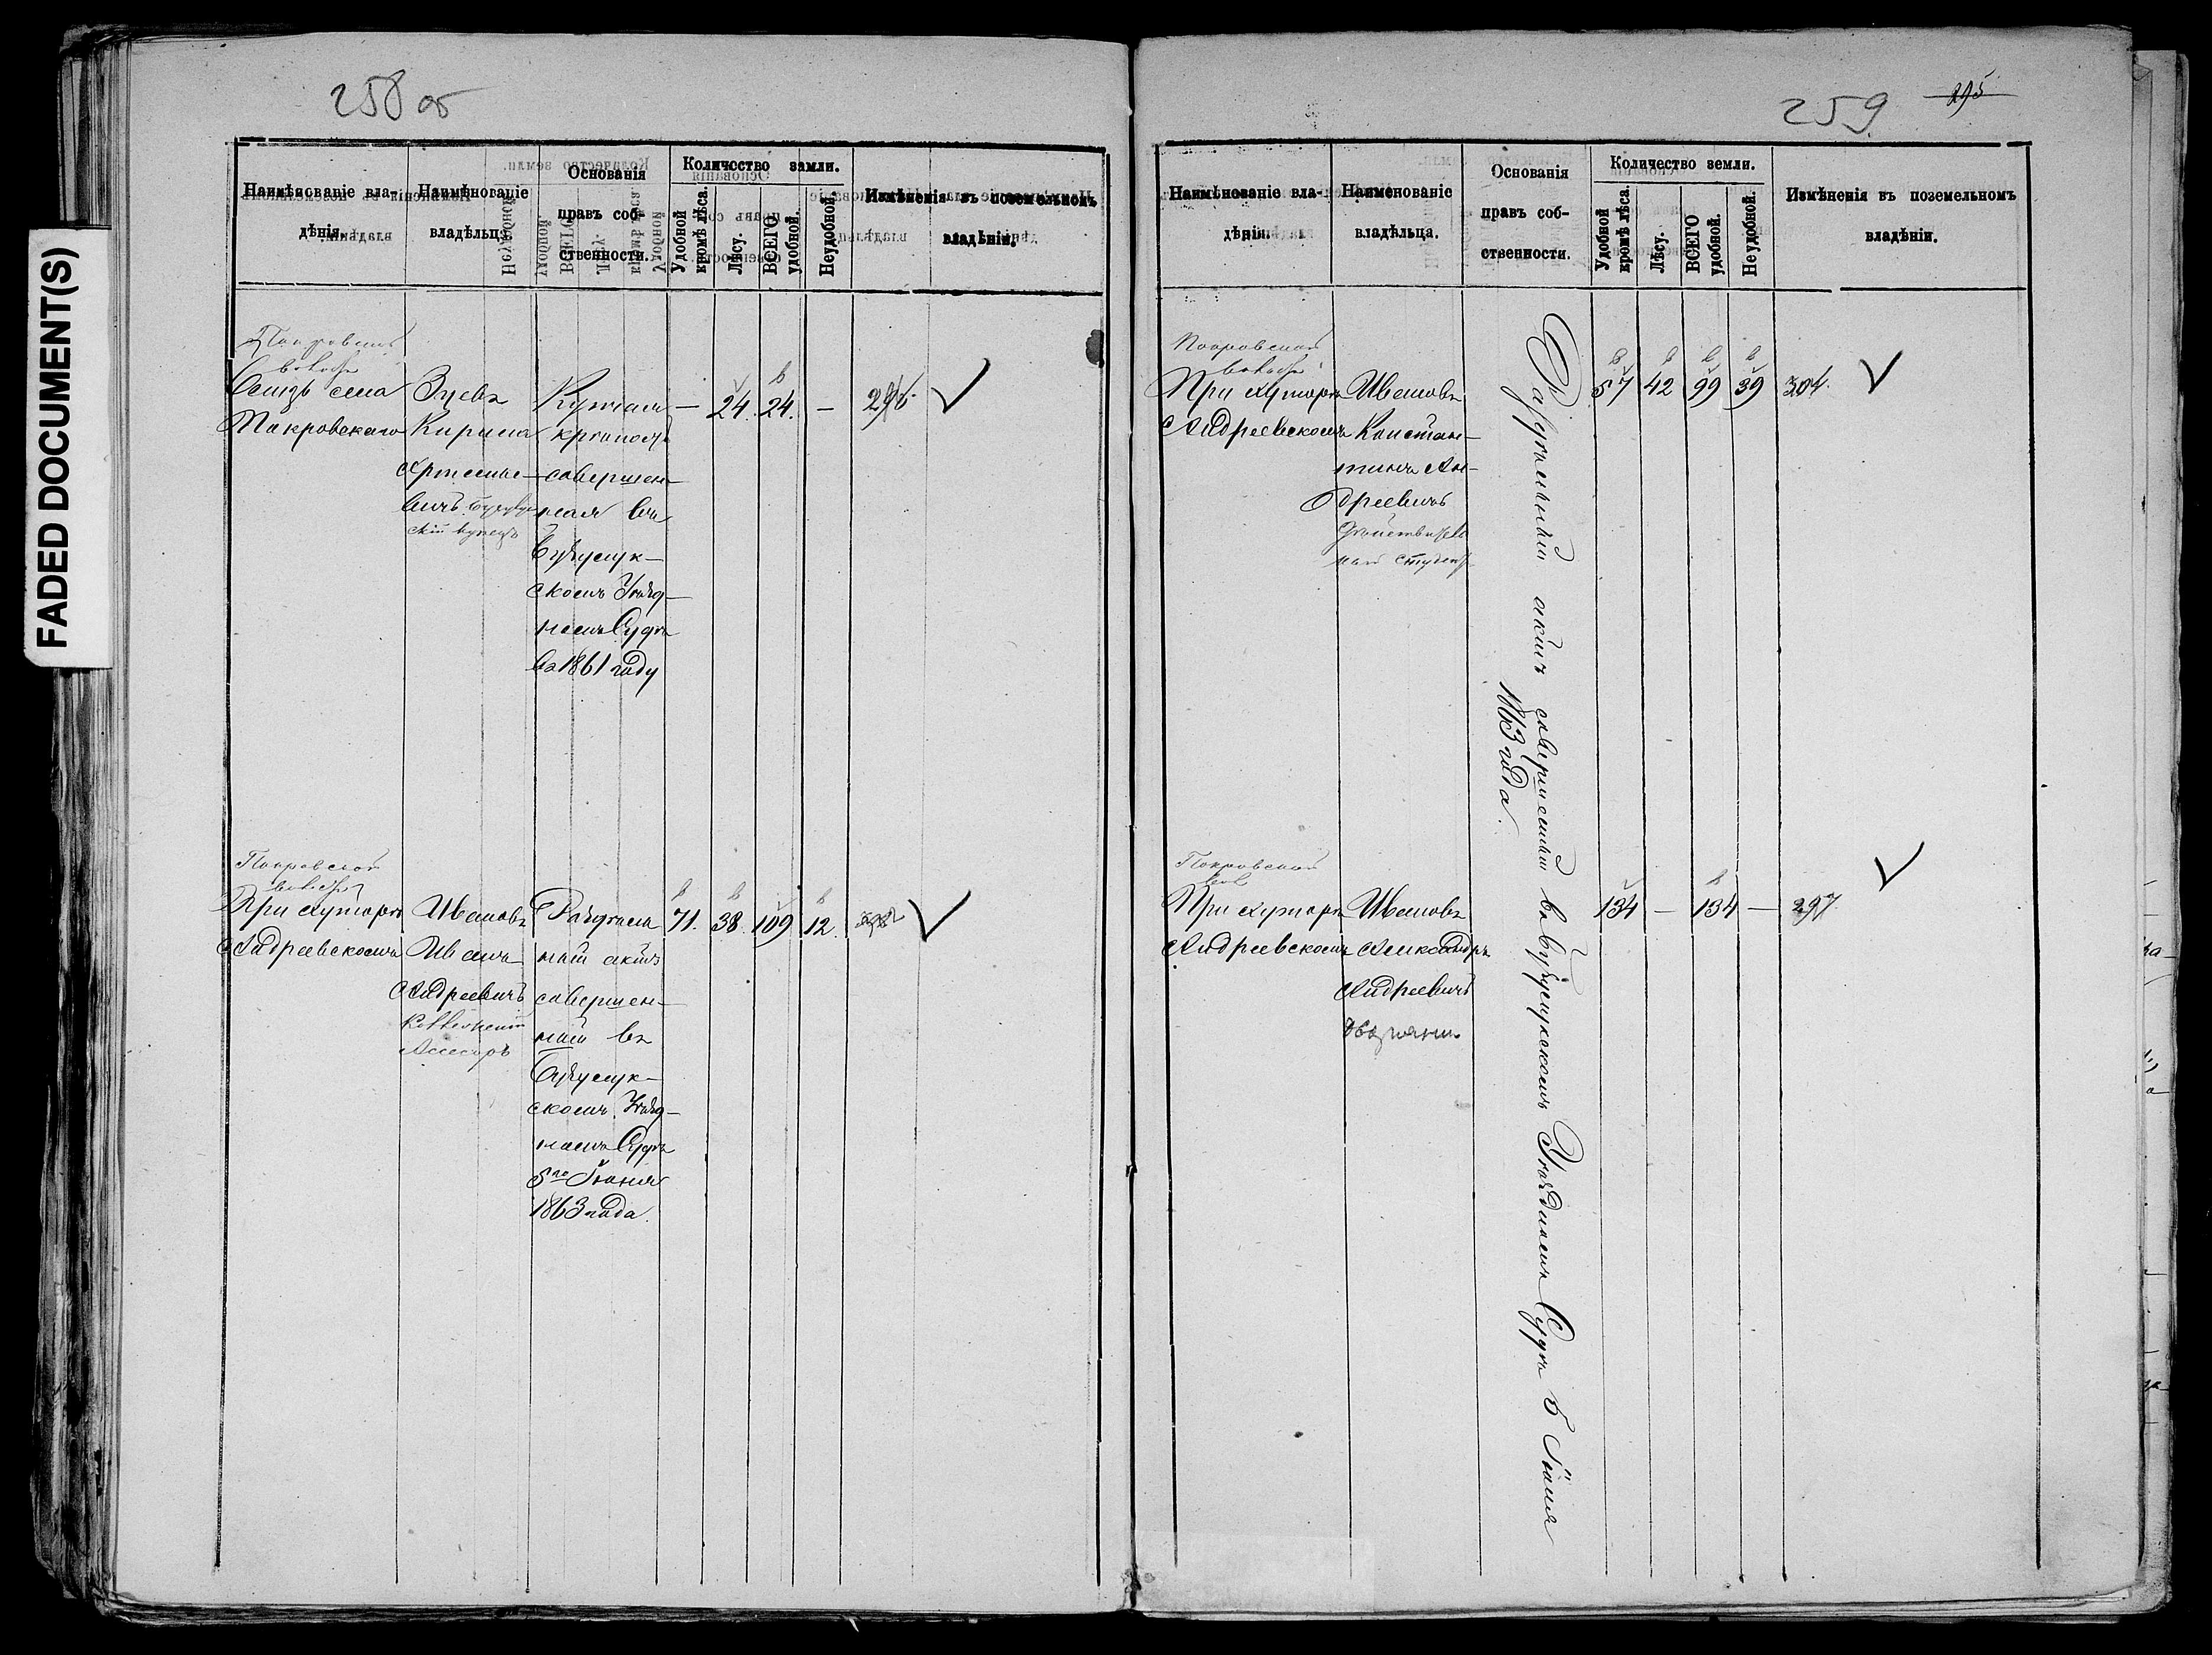 FADED DOCUMENT(S)
258 об
Наименованіе вла-
дѣнія.
Наименованіе
владѣльца
Основанія
правъ соб-
ственности.
Количество земли.
Удобной
кромѣ лѣса.
Лѣсу.
ВСЕГО
удобной.
Неудобной.
Измѣненія въ поземельномъ
владѣніи.
Покровской
волости
Близь села
Покровскаго
Зуевъ
Кирила
Артемье-
вичъ Бузулук
скій купецъ
Купчая
крѣпость
совершен-
ная въ
Бузулук-
скомъ Уѣзд-
номъ Судѣ
въ 1861 году
— 24. 24. —
296
Покровской
волости
При хуторѣ
Андреевскомъ
Ивановъ
Иванъ
Андреевичъ
Коллежскій
Асесоръ
Раздѣль
ный актъ
совершен-
ный въ
Бузулук-
скомъ Уѣзд-
номъ Судѣ
5го Іюня
1863 года.
71. 38. 109 12.
259
295
Наименованіе вла-
дѣнія.
Наименованіе
владѣльца.
Основанія
правъ соб-
ственности.
Количество земли.
Удобной
кромѣ лѣса.
Лѣсу.
ВСЕГО
удобной.
Неудобной.
Измѣненія въ поземельномъ
владѣніи.
Покровской
волости
При хуторѣ
Андреевскомъ
Ивановъ
Констан-
тинъ Ан-
дреевичъ
Дѣйствитель
ный студентъ
Раздѣльный актъ совершенный въ Бузулукскомъ Уѣздномъ Судѣ 5 Іюня
1863 года.
57 42 99 39
304.
Покровской
вол
При хуторѣ
Андреевскомъ
Ивановъ
Александръ
Андреевичъ
дворянин
134 — 134 —
297.